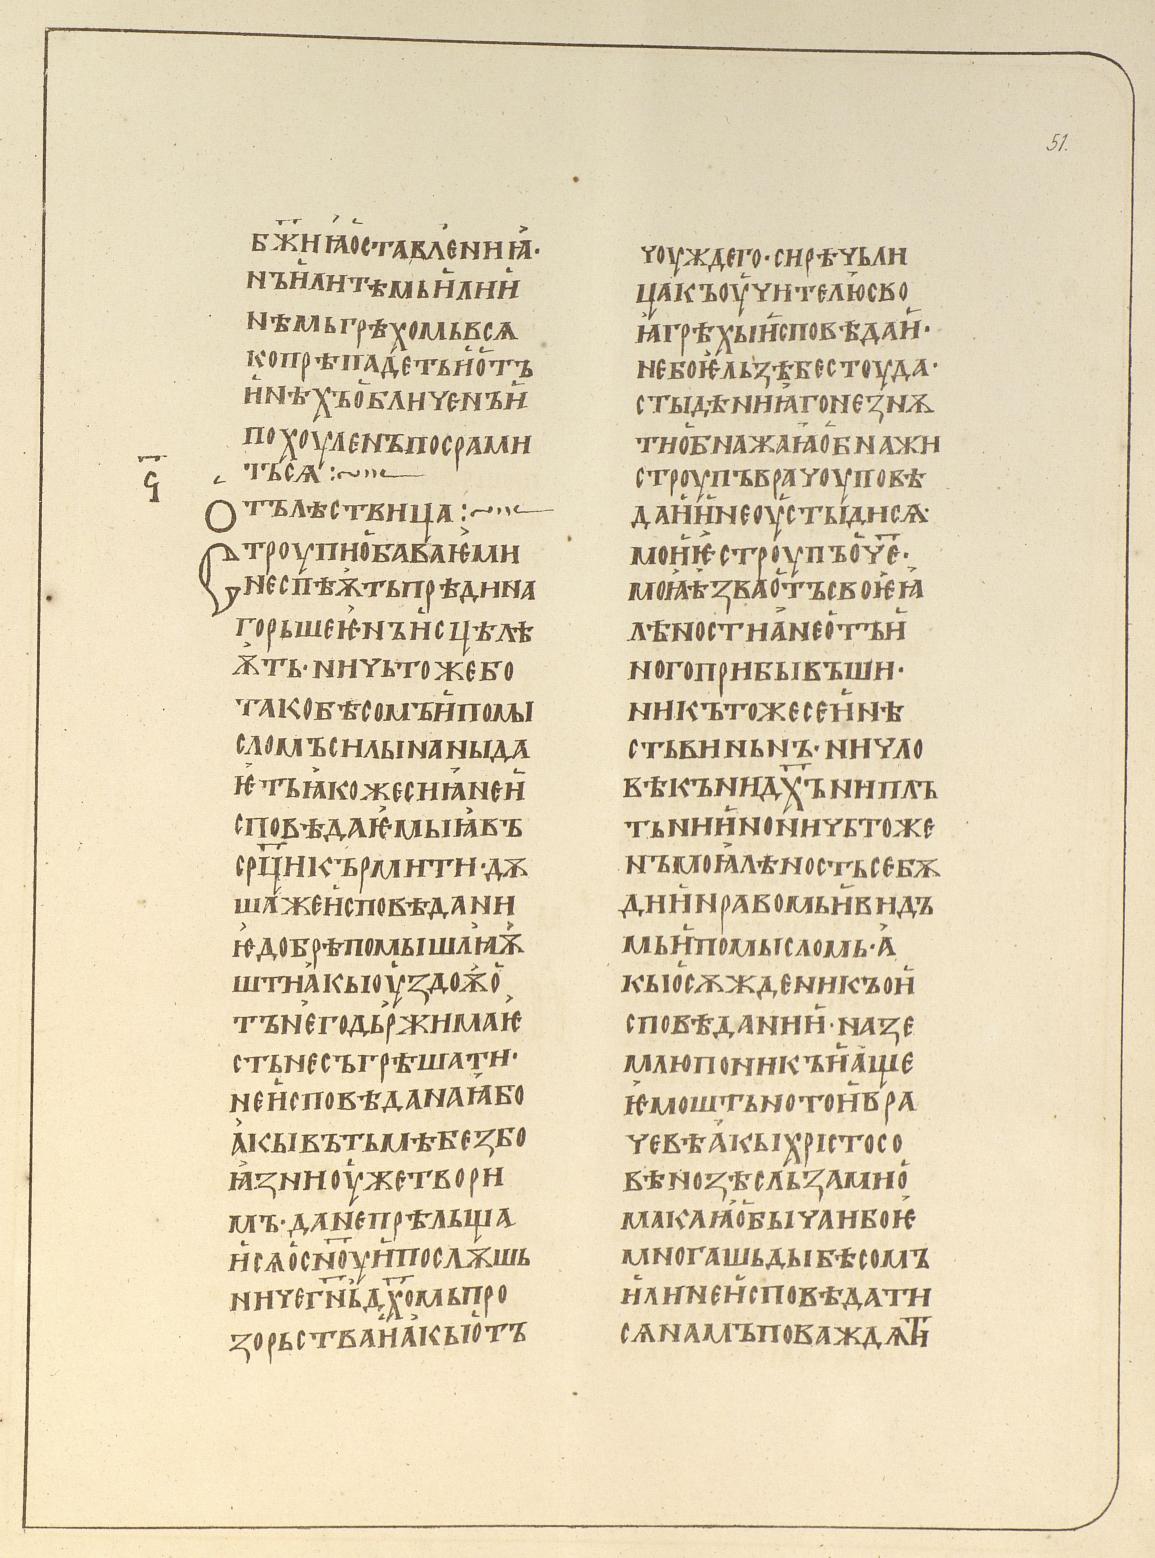 51.
БЖ҃НИꙖОСТАВЛЕНИꙖ·
НЪИЛИТѢМЬИЛИИ
НѢМЬГРѢХОМЬВСѦ
КОПРѢПАДЕТЬИОТЪ
ИНѢХЪОБЛИЧЕНЪИ
ПОХОУЛЕНЪПОСРАМИ
ТЪСѦ:~
Ѕ҃
ОТЪЛѢСТВИЦА:~
СТРОУПИОБАВАѤМИ
НЕСПѢѬТЬПРѢДИНА
ГОРЬШЕѤНЪИСЦѢЛѢ
ѪТЬ·НИЧЬТОЖЕБО
ТАКОБѢСОМЪИПОМЫ
СЛОМЪСИЛЫНАНЫДА
ѤТЬꙖКОЖЕСИꙖНЕИ
СПОВѢДАѤМЫꙖВЪ
СРЦ҃ИКЪРМИТИ·ДѪ
ШАЖЕИСПОВѢДАНИ
ѤДОБРѢПОМЫШЛꙖѬ
ШТИАКЫОУЗДОѬО
ТЪНЕГОДЬРЖИМАѤ
СТЬНЕСЪГРѢШАТИ·
НЕИСПОВѢДАНАꙖБО
АКЫВЪТЬМѢБЕЗБО
ꙖЗНИОУЖЕТВОРИ
МЪ·ДАНЕПРѢЛЬЩА
ИСѦОСН҃ОУИПОСЛѪШЬ
НИЧЕГН҃ЬДХ҃ОМЬПРО
ЗОРЬСТВАИАКЫОТЪ
ЧОУЖДЕГО·СИРѢЧЬЛИ
ЦАКЪОУЧИТЕЛЮСВО
ꙖГРѢХЫИСПОВѢДАИ·
НЕБОѤЛЬЗѢБЕСТОУДА·
СТЫДѢНИꙖГОНЕЗНѪ
ТИОБНАЖАꙖОБНАЖИ
СТРОУПЪВРАЧОУПОВѢ
ДАИИНЕОУСТЫДИСѦ
МОИѤСТРОУПЪОЧ҃Е·
МОꙖѢЗВАОТЪСВОѤꙖ
ЛѢНОСТИАНЕОТЪИ
НОГОПРИБЫВЪШИ·
НИКЪТОЖЕСЕИНѢ
СТЬВИНЬНЪ·НИЧЛО
ВѢКЪНИДХ҃ЪНИПЛЪ
ТЬНИИНОНИЧЬТОЖЕ
НЪМОꙖЛѢНОСТЬСЕБѪ
ДИИНРАВОМЬИВИДЪ
МЬИПОМЫСЛОМЬ·А
КЫОСѪЖДЕНИКЪОИ
СПОВѢДАНИИ·НАЗЕ
МЛЮПОНИКЪИАЩЕ
ѤМОШТЬНОТОИВРА
ЧЕВѢАКЫХРІСТОСО
ВѢНОЗѢСЛЬЗАМИО
МАКАꙖОБЫЧАИБОѤ
МНОГАШЬДЫБѢСОМЪ
ИЛИНЕИСПОВѢДАТИ
СѦНАМЪПОВАЖДѦТИ